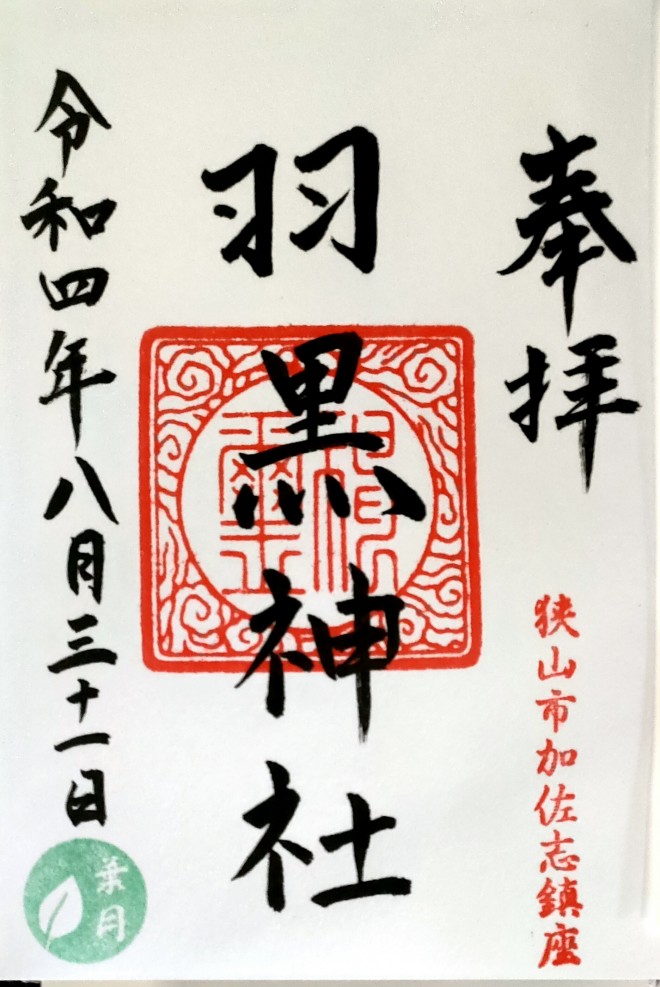 奉拝
狭山市加佐志鎮座
羽黒神社
神璽
令和四年八月三十一日
葉月